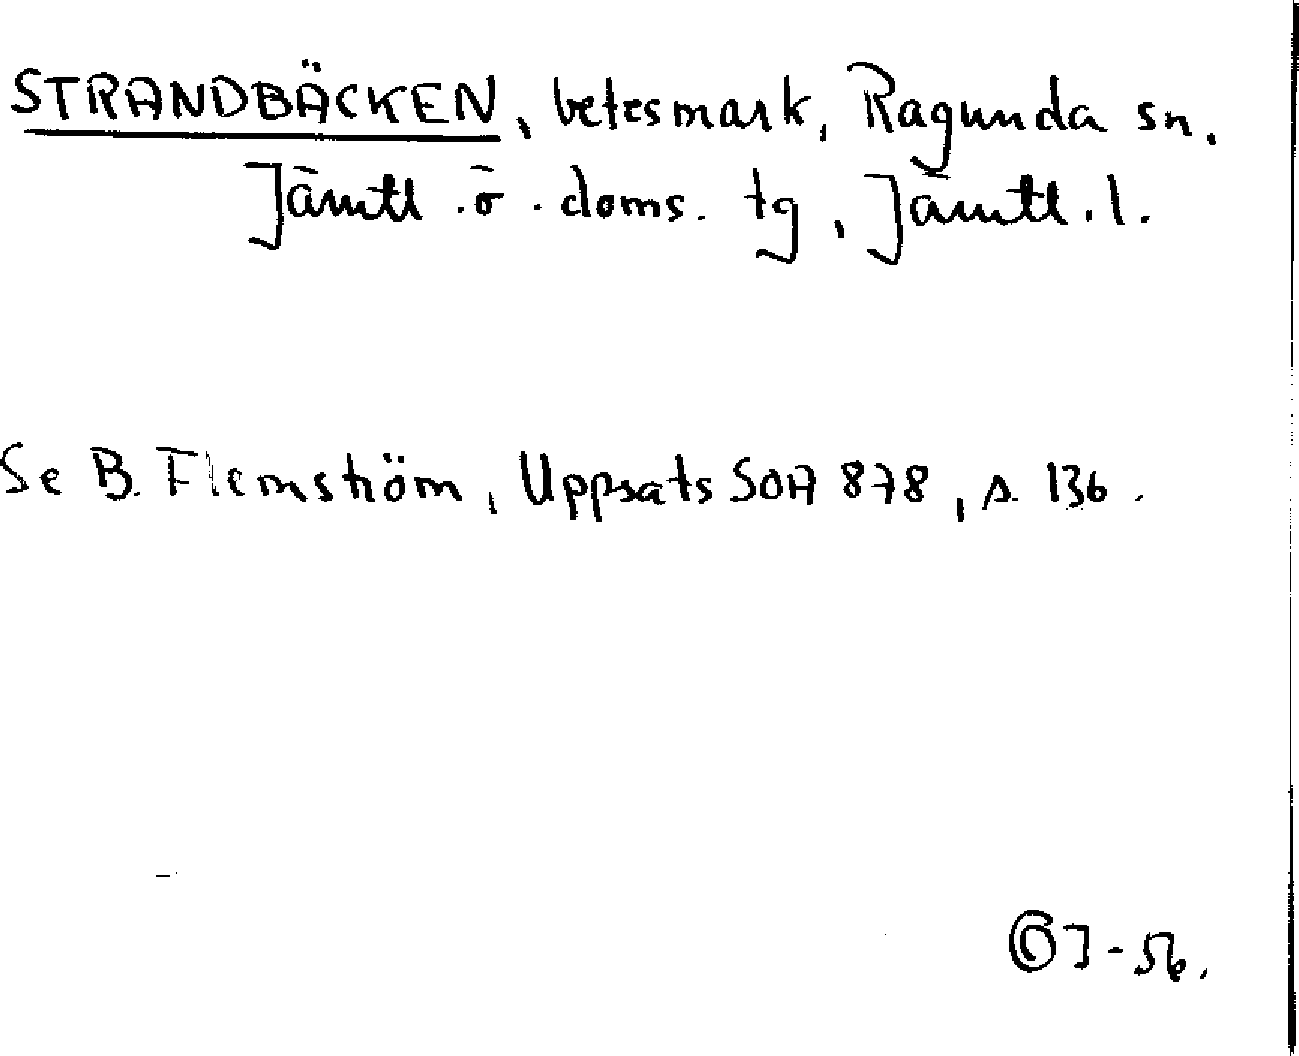 STRANDBÄCKEN, betesmark, Ragunda sn.
Jämtl. ö. doms. tg, Jämtl. l.
Se B. Flemström, Uppsats SOA 878, s. 136.
J-56.